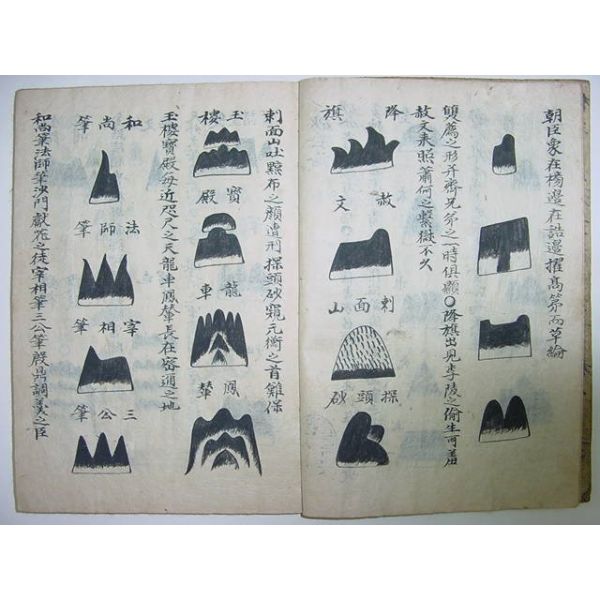 朝臣象在楊邊在誥邊擢髙苐而草綸
雙薦之形并齊兄弟之一時俱顯〇降旗出見李陵之偷生可羞
赦文未照蕭何之縶獄不久
降旗
赦文
刺面山
探頭砂
刺面山吐黥布之顔遭刑探頭砂窺元衡之首難保
玉樓
寳殿
龍車
鳳輦
玉樓寳殿每近咫尺之天龍車鳳輦長在密通之地
和尚筆
法師筆
宰相筆
三公筆
和尚筆法師筆沙門獻咒之徒宰相筆三公筆殷鼎調羹之臣